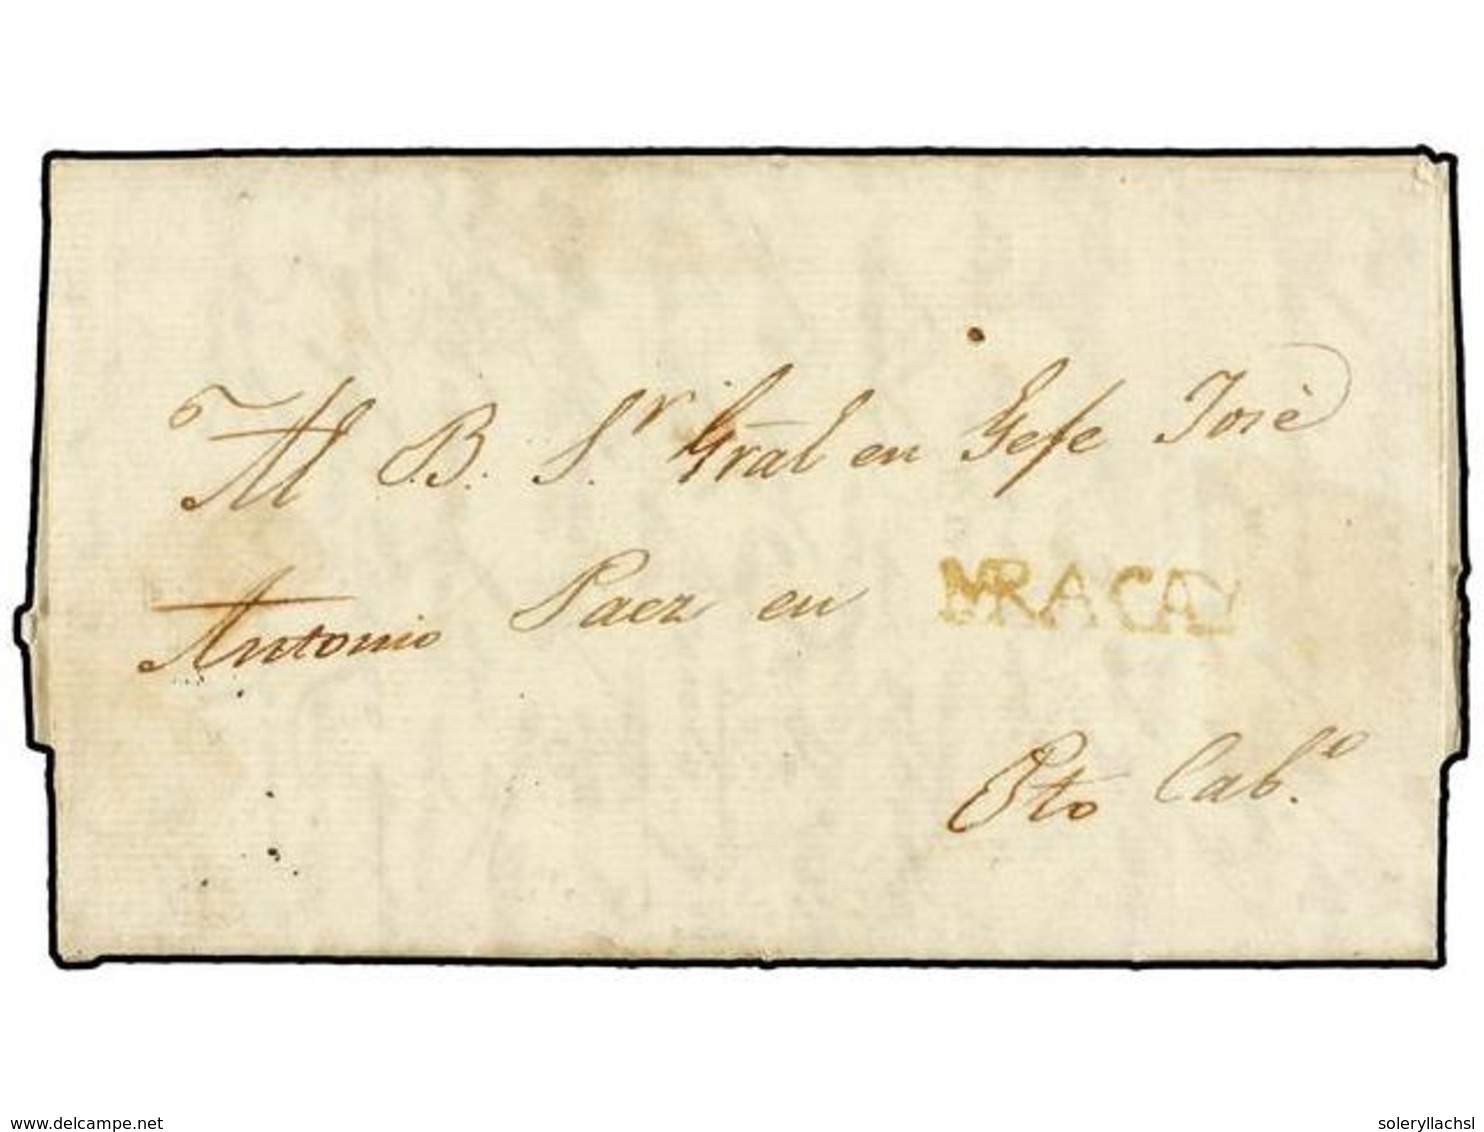 Al B. Sr. Gral en Gefe José
Antonio Paez en MRACAY
Pto Cabo.
delcampe.net
soleryllachsl